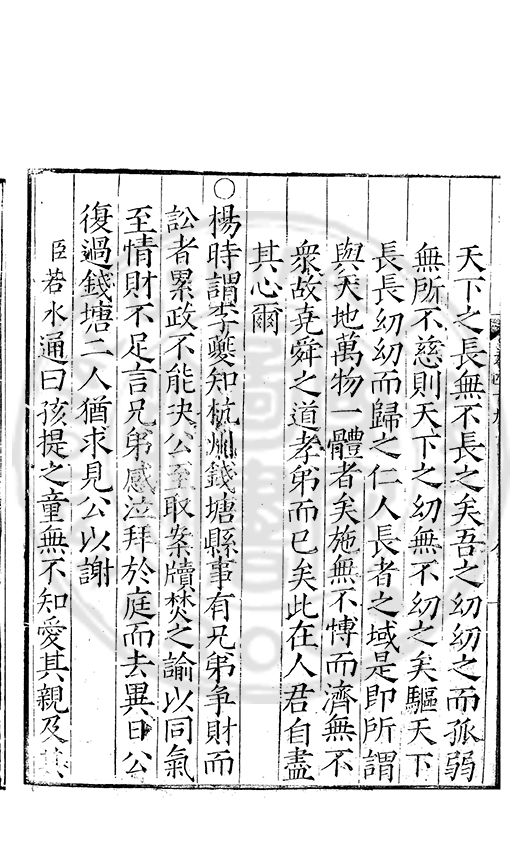 天下之長無不長之矣吾之幼幼之而孤弱
無所不慈則天下之幼無不幼之矣驅天下
長長幼幼而歸之仁人長者之域是即所謂
與天地萬物一體者矣施無不愽而濟無不
衆故堯舜之道孝弟而已矣此在人君自盡
其心爾
○楊時謂李夔知杭州錢塘縣事有兄弟爭財而
訟者累政不能決公至取案牘焚之諭以同氣
至情財不足言兄弟感泣拜於庭而去異日公
復過錢塘二人猶求見公以謝
臣若水通曰孩提之童無不知愛其親及其